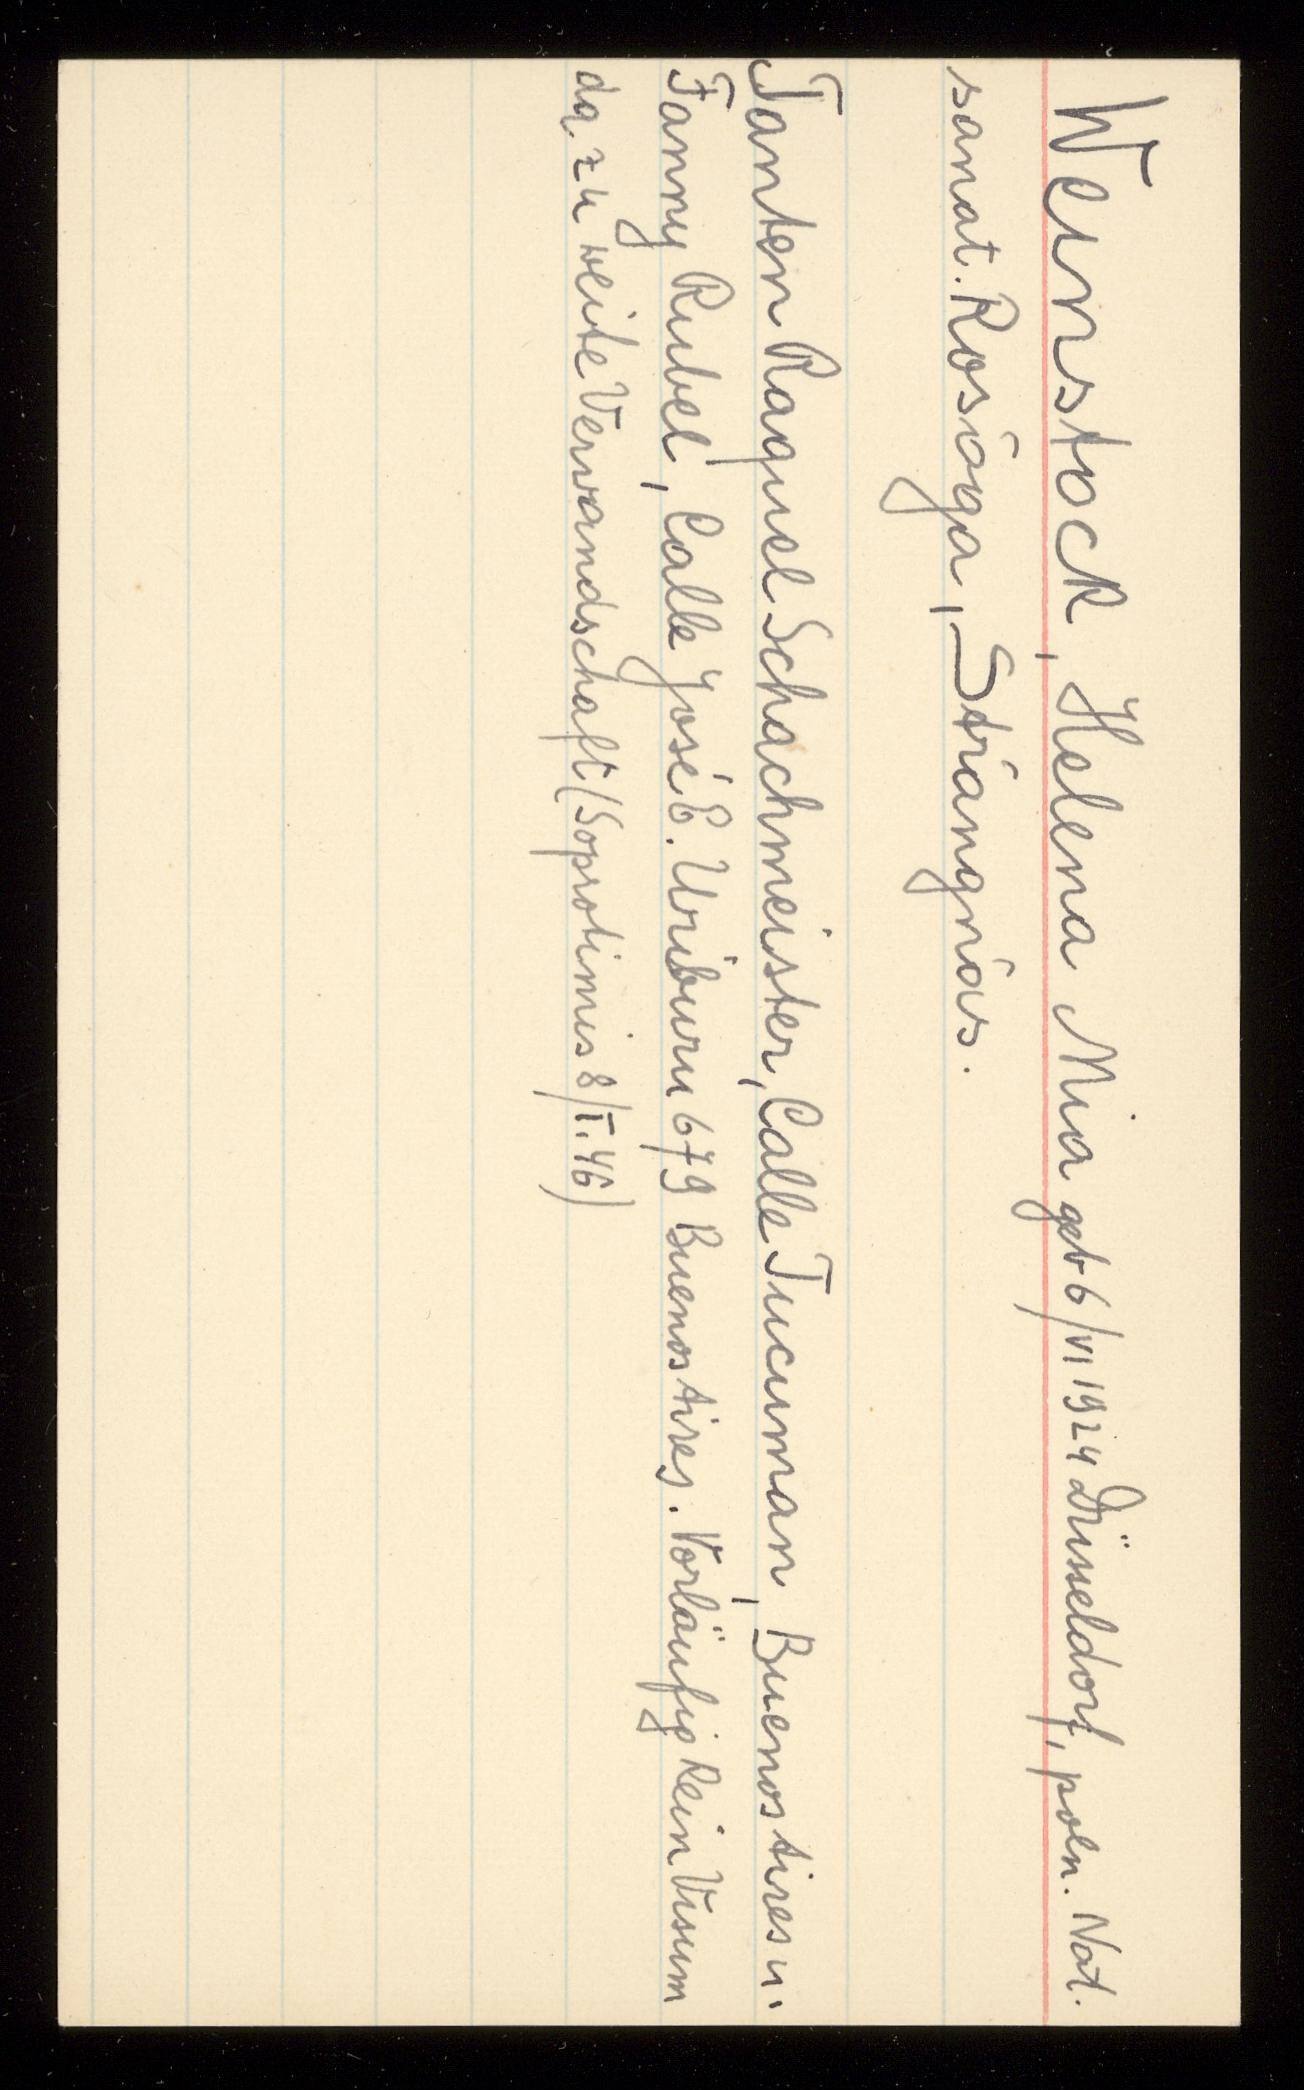 Weinstock, Helena Mia geb 6/VI 1924 Düsseldorf, poln. Nat.
sanat. Rosöga, Strängnäs.
Tanten Raquel Schachmeister, Calle Tucuman, Buenos Aires u.
Fanny Rubel, Calle José E. Uriburu 679 Buenos Aires. Vorläufig kein Visum
da zu weite Verwandschaft (Soprotimis 8/I.46)